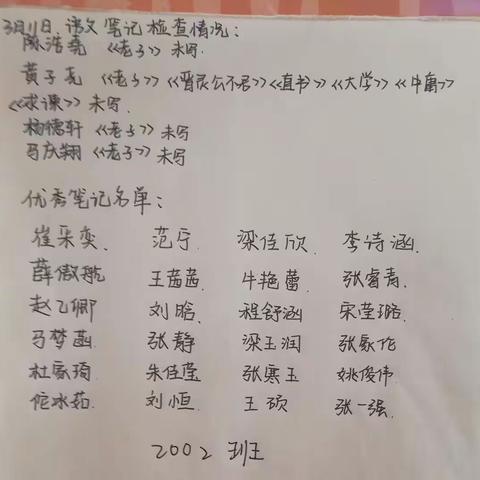 3月11日.语文笔记检查情况：
陈浩尧《老子》未写.
黄子尧《老子》《晋灵公不君》《直书》《大学》《牛角》
《求谏》未写.
杨德轩《老子》未写
马庆翔《老子》未写
优秀笔记名单：
崔采奕. 范宁. 梁佳欣. 李诗涵.
薛傲航 王茜茜. 牛艳蕾. 张睿青.
赵乙卿 刘晗. 程舒涵. 宋莹璐.
马梦菡. 张静 梁玉润. 张家作
杜家琦 朱佳莹. 张寒玉 姚俊伟
佗冰茹. 刘恒. 王硕. 张一强.
2002班